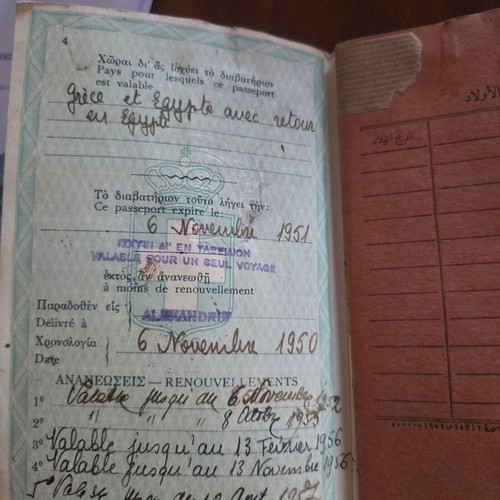 4
Χῶραι δι' ἃς ἰσχύει τὸ διαβατήριον
Pays pour lesquels ce passeport
est valable
Grèce et Egypte avec retour
en Egypte
Τὸ διαβατήριον τοῦτο λήγει τὴν:
Ce passeport expire le:
6 Novembre 1951
ΙΣΧΥΕΙ ΔΙ' ΕΝ ΤΑΞΕΙΔΙΟΝ
VALABLE POUR UN SEUL VOYAGE
ἐκτὸς ἂν ἀνανεωθῇ
à moins de renouvellement
Παραδοθὲν εἰς
Delivré à
ALEXANDRIE
Χρονολογία
Date
6 Novembre 1950
ΑΝΑΝΕΩΣΕΙΣ — RENOUVELLEMENTS
1º Valable jusqu'au 6 Novembre 1952
2º " " " 8
3º Valable jusqu'au 13 Février 1956
4º Valable jusqu'au 13 Novembre 1956
5º
الأولاد
تاريخ الميلاد